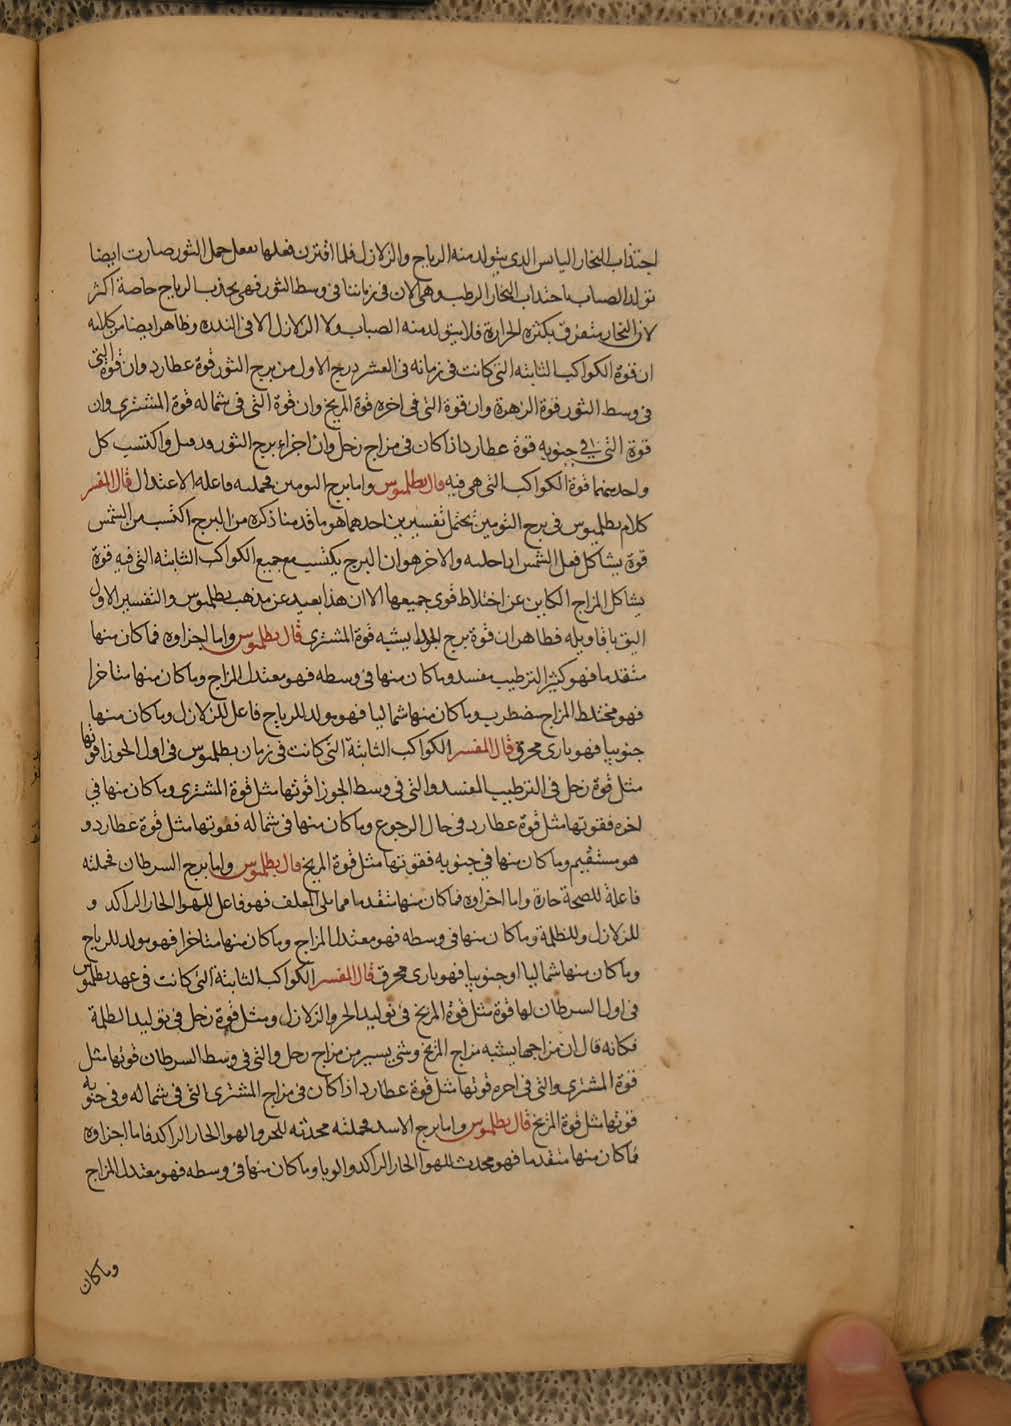 اجتذاب البخار اليابس الذي يتولد منه الرياح والزلازل فلما اقترن فعلها بفعل حمل الثور صارت ايضا
تولد الضباب باجتذاب البخار الرطب وهي الان في زماننا في وسط الثور فهي تجذب الرياح خاصة اكثر
لان البخار يتفرق بكثرة الحرارة فلا يتولد منه الضباب ولا الزلازل الا في الندرة وظاهر ايضا من كلامه
ان قوة الكواكب الثابتة التي كانت في زمانه في العشر درج الاول من برج الثور قوة عطارد وان قوة التي
في وسط الثور قوة الزهرة وان قوة التي في اخره قوة المريخ وان قوة التي في شماله قوة المشتري وان
قوة التي في جنوبه قوة عطارد اذا كان في مزاج زحل وان اجزاء برج الثور واكتسب كل
واحد منها قوة الكواكب التي هي فيه قال بطلميوس واما برج التومين فجملته فاعلة الاعتدال قال المفسر
كلام بطلميوس في برج التومين يحتمل تفسيرين احدهما هو ما قدمنا ذكره من البرج اكتسب من الشمس
قوة يشاكل فعل الشمس اذا حلته والاخر هو ان البرج يكتسب مع جميع الكواكب الثابتة التي فيه قوة
يشاكل المزاج الكاين عن اختلاط قوى جميعها الا ان هذا بعيد عن مذهب بطلميوس والتفسير الاول
اليق باقاويله فظاهر ان قوة برج الجوزا يشبه قوة المشتري قال بطلميوس واما اجزاوه فما كان منها
متقدما فهو كثير الترطيب مفسد وما كان منها في وسطه فهو معتدل المزاج وما كان منها متاخرا
فهو مختلط المزاج مضطرب وما كان منها شماليا فهو مولد للرياح فاعل للزلازل وما كان منها
جنوبيا فهو ناري محرق قال المفسر الكواكب الثابتة التي كانت في زمان بطلميوس في اول الجوزا قوتها
مثل قوة زحل في الترطيب المفسد والتي في وسط الجوزا قوتها مثل قوة المشتري وما كان منها في
اخره فقوتها مثل قوة عطارد في حال الرجوع وما كان منها في شماله فقوتها مثل قوة عطارد و
هو مستقيم وما كان منها في جنوبه فقوتها مثل قوة المريخ قال بطلميوس واما برج السرطان فجملته
فاعلة للصحة حارة واما اجزاوه فما كان منها متقدما فما يلي المعلف فهو فاعل للهوا الحار الراكد و
للزلازل وللظلمة وما كان منها في وسطه فهو معتدل المزاج وما كان منها متاخرا فهو مولد للرياح
وما كان منها شماليا او جنوبيا فهو ناري محرق قال المفسر الكواكب الثابتة التي كانت في عهد بطلميوس
في اول السرطان لها قوة مثل قوة المريخ في توليد الحر والزلازل ومثل قوة زحل في توليد الظلمة
فكانه قال ان مزاجها يشبه مزاج المريخ وشي يسير من مزاج زحل والتي في وسط السرطان قوتها مثل
قوة المشتري والتي في اخره قوتها مثل قوة عطارد اذا كان في مزاج المشتري التي في شماله وفي جنوبه
قوتها مثل قوة المريخ قال بطلميوس واما برج الاسد فجملته محدثة للحر والهوا الحار الراكد فاما اجزاوه
فما كان منها متقدما فهو محدث للهوا الحار الراكد والوبا وما كان منها في وسطه فهو معتدل المزاج
وما كان